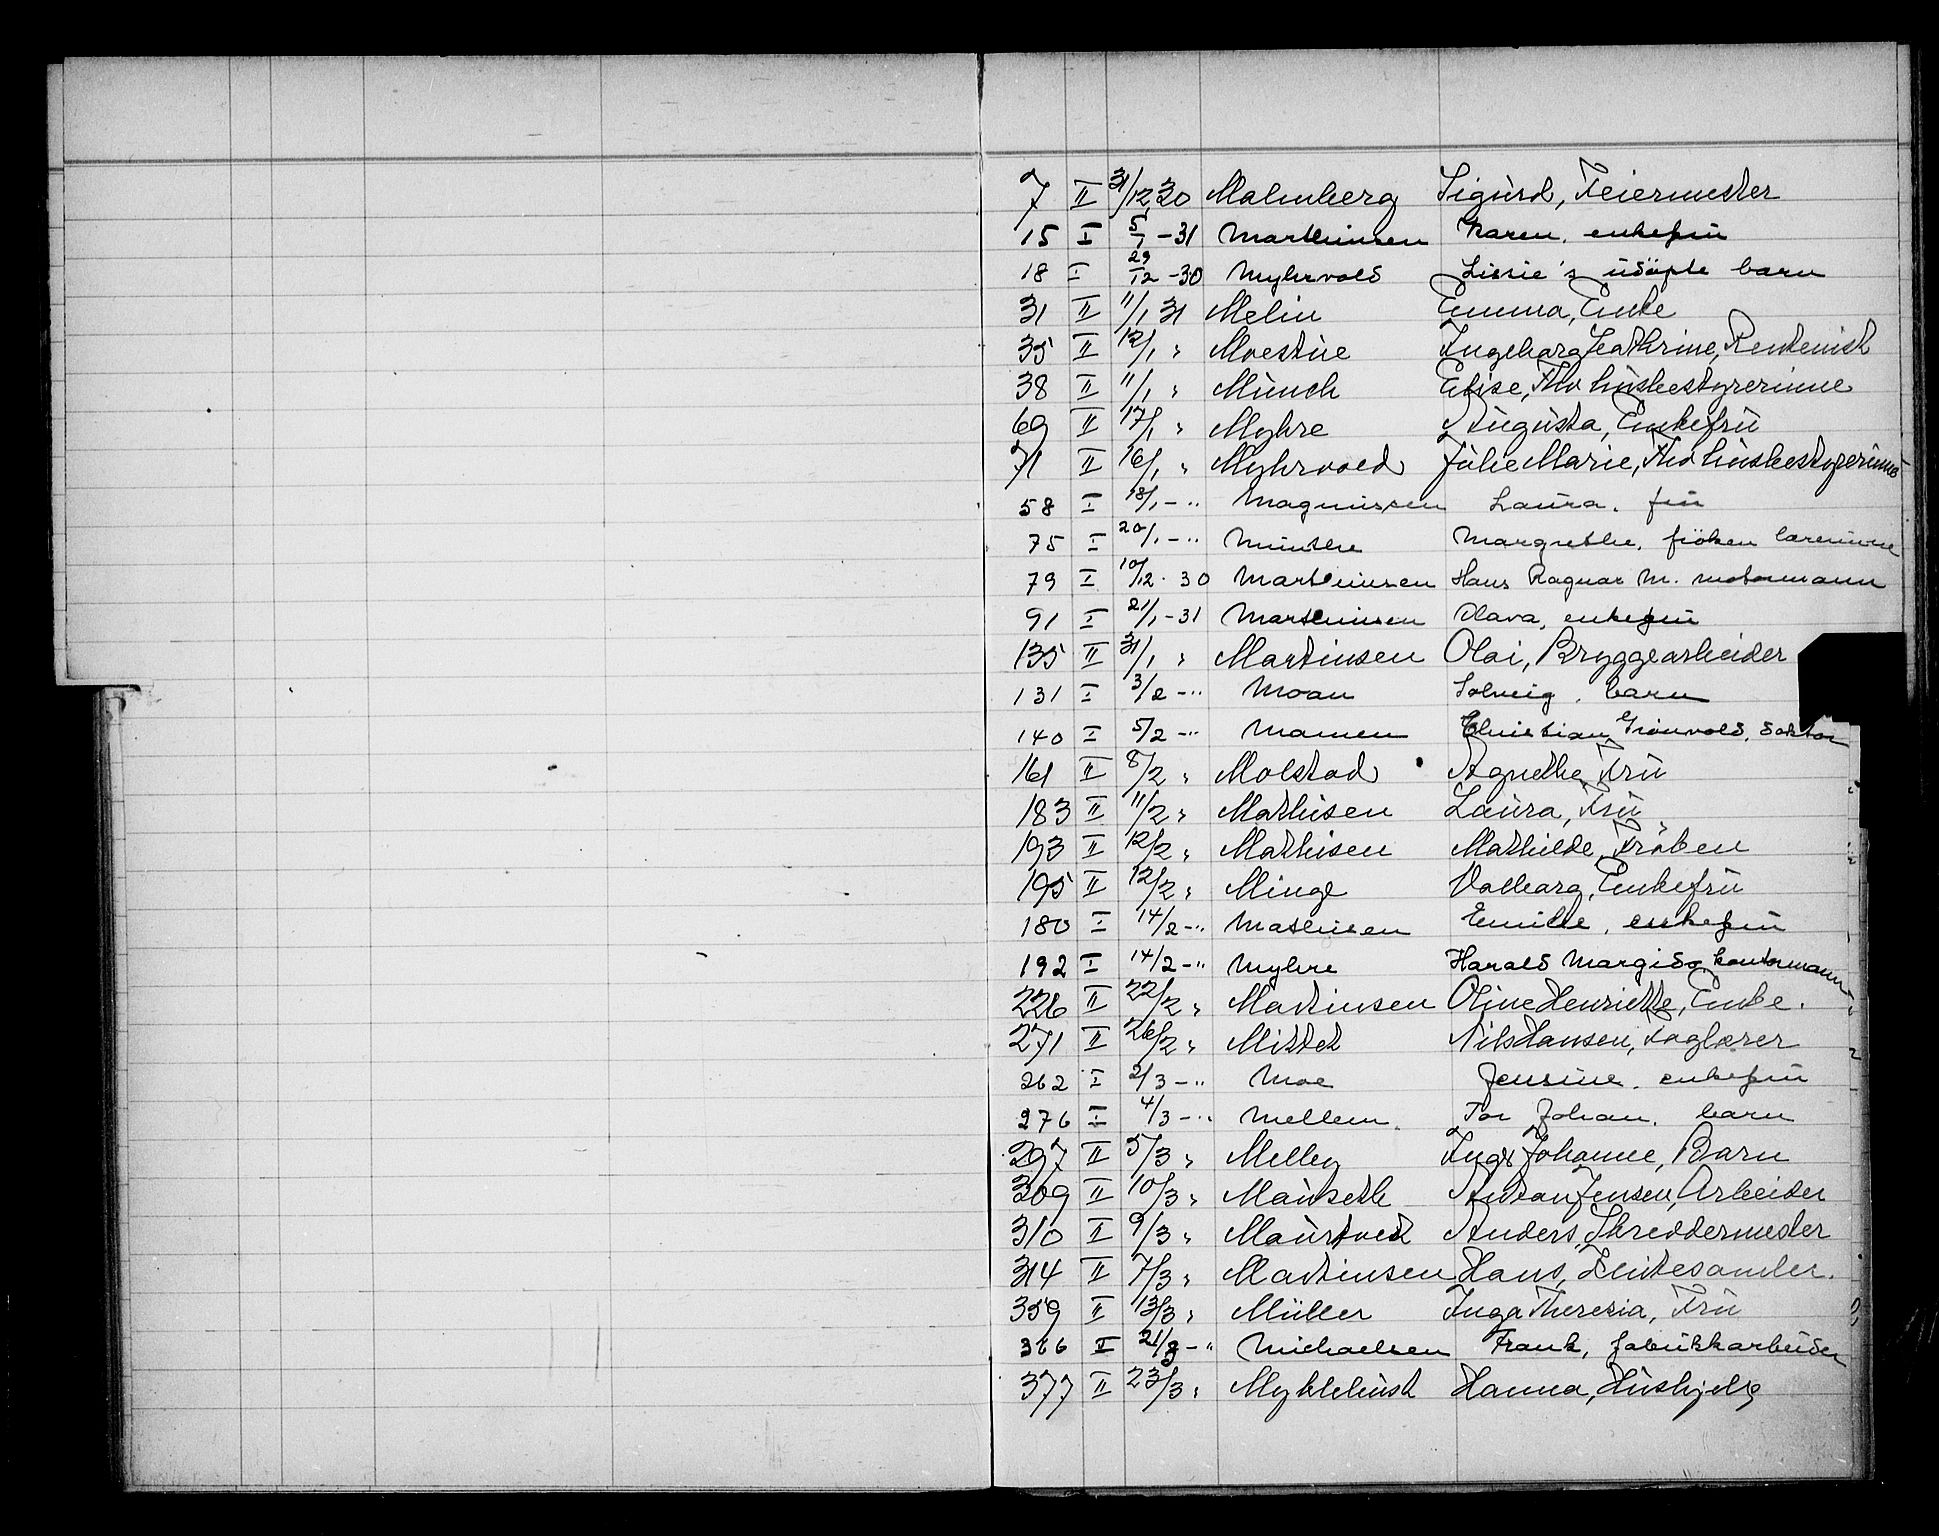 7 II 31/12 30 Malmberg Sigurd, Feiermester
15 I 5/1 -31 Marthinsen Karen, enkefru
18 I 29/12 -30 Myhrvold Lissie's udöpte barn
31 II 11/1 31 Melin Emma, Enke
35 II 12/1 " Moestue Ingeborg Cathrine, Rentenist
38 II 11/1 " Münch Elise, Fhv husbestyrerinne
69 II 17/1 " Myhre Augusta, Enkefru
71 II 16/1 " Myhrvold Julie Marie, Fhv husbestyrerinne
58 I 18/1 - " Magnussen Laura, fru
75 I 20/1 - " Munthe Margrethe, fröken lærerinne
79 I 10/12 - 30 Marthinsen Hans Ragnar M. motormann
91 I 21/1 -31 Marthinsen Olava, enkefru
135 II 31/1 " Martinsen Olai, Bryggearbeider
131 I 3/2 - " Moan Solveig, barn
140 I 5/2 - " Mamen Christian Grönvold, doktor
161 II 8/2 " Molstad Agnethe, Fru
183 II 11/2 " Mathisen Laura, Fru
193 II 12/2 " Mathisen Mathilde, Fröken
195 II 12/2 " Minge Valborg, Enkefru
180 I 14/2 - " Mathisen Emilie, enkefru
192 I 14/2 - " Myhre Harald Margido, kontormann
226 II 22/2 " Martinsen Oline Henriette, Enke.
271 II 26/2 " Mittet Nils Hansen, Faglærer
262 I 2/3 - " Moe Jensine, enkefru
276 I 4/3 - " Mellem Tor Johan, barn
297 II 5/3 " Melley Inger Johanne, Barn
309 II 10/3 " Mauseth Anton Jensen, Arbeider
310 II 9/3 " Maurtvedt Anders, Skreddermester
314 II 7/3 " Martinsen Hans,
359 II 13/3 " Müller Inga Theresia, Fru
366 I 21/3 - " Michaelsen Frank, fabrikkarbeider
377 II 23/3 " Myklebust Hanna, Hushjelp